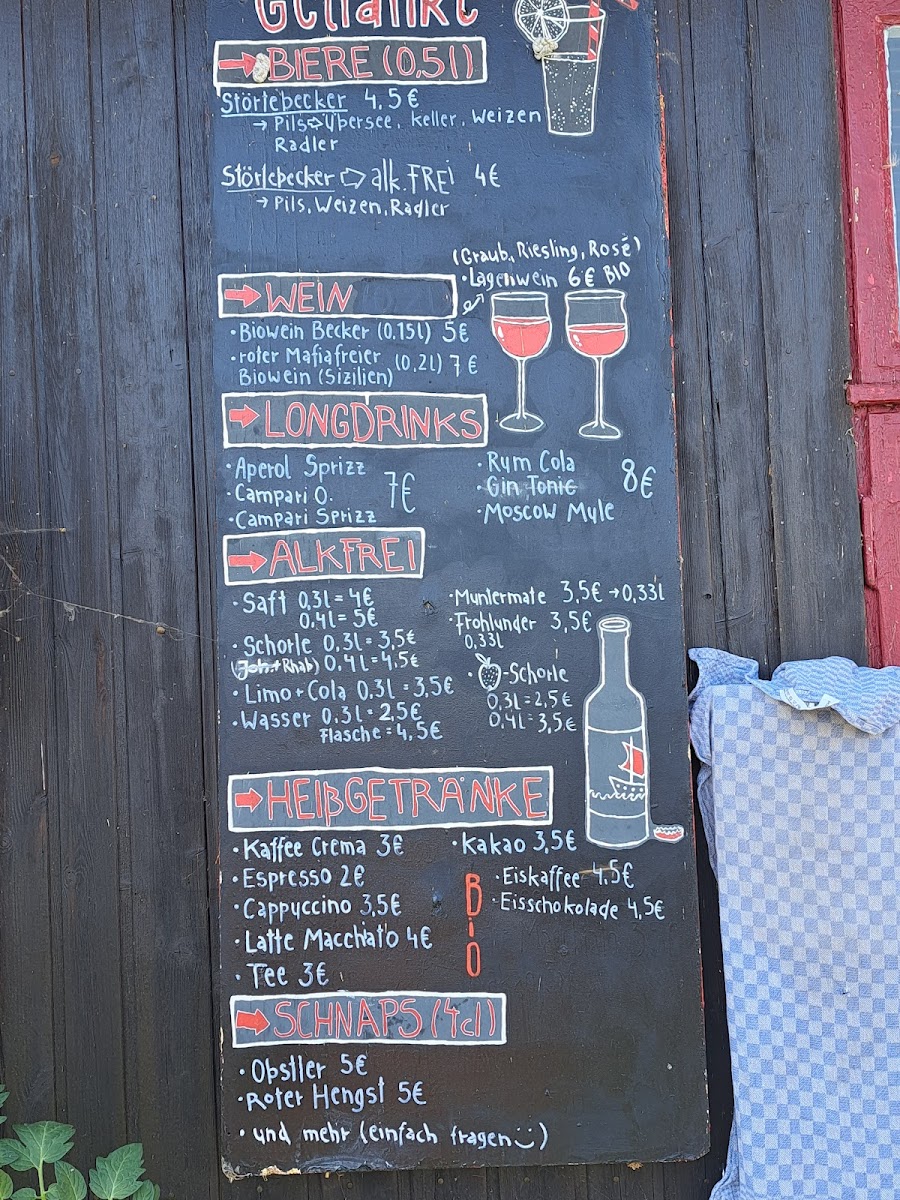 Getränke
BIERE (0,5l)
Störtebecker 4,5€
→ Pils⇨Übersee, Keller, Weizen
Radler
Störtebecker ⇨ alk.FREi 4€
→ Pils, Weizen, Radler
(Graub., Riesling, Rosé)
• Lagenwein 6€ BIO
WEIN
• Biowein Becker (0.15l) 5€
• roter Mafiafreier (0,2l) 7€
Biowein (Sizilien)
LONGDRINKS
• Aperol Sprizz
• Campari O. 7€
• Campari Sprizz
• Rum Cola 8€
• Gin Tonic
• Moscow Mule
ALKFREI
• Saft 0,3l = 4€
0,4l = 5€
• Schorle 0,3l = 3,5€
(Joh.+Rhab) 0,4l = 4,5€
• Limo + Cola 0,3l = 3,5€
• Wasser 0,3l = 2,5€
Flasche = 4,5€
• Muntermate 3,5€ → 0,33l
• Frohlunder 3,5€
0,33l
• -Schorle
0,3l = 2,5€
0,4l = 3,5€
HEIßGETRÄNKE
• Kaffee Crema 3€
• Espresso 2€
• Cappuccino 3,5€
• Latte Macchiato 4€
• Tee 3€
BiO
• Kakao 3,5€
• Eiskaffee 4,5€
• Eisschokolade 4,5€
SCHNAPS (4cl)
• Obstler 5€
• Roter Hengst 5€
• und mehr (einfach fragen :))